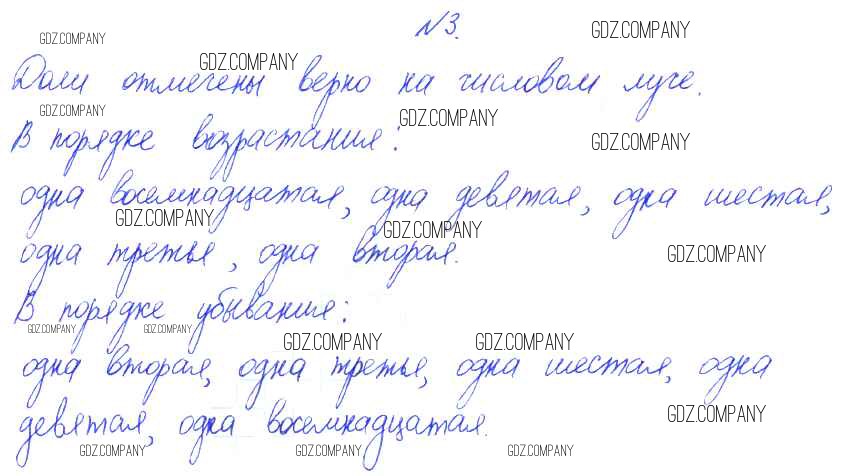 №3.
GDZ.COMPANY GDZ.COMPANY
GDZ.COMPANY
Доли отмечены верно на числовом луче.
GDZ.COMPANY GDZ.COMPANY
В порядке возрастания:
GDZ.COMPANY
одна восемнадцатая, одна девятая, одна шестая,
GDZ.COMPANY GDZ.COMPANY
одна третья, одна вторая.
GDZ.COMPANY
В порядке убывания:
GDZ.COMPANY GDZ.COMPANY GDZ.COMPANY GDZ.COMPANY
одна вторая, одна третья, одна шестая, одна
GDZ.COMPANY
девятая, одна восемнадцатая.
GDZ.COMPANY GDZ.COMPANY GDZ.COMPANY